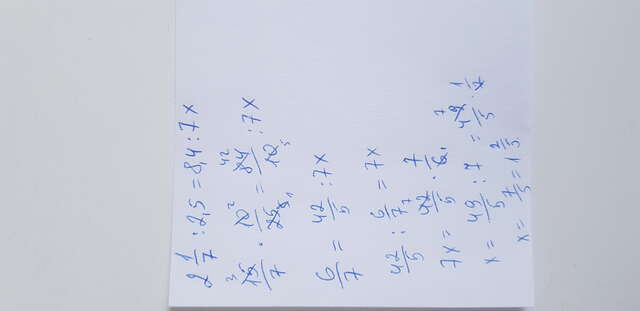 2 1/7 : 2,5 = 8,4 : 7x
15/7 · 10/25 = 84/10 : 7x
6/7 = 42/5 : 7x
42/5 : 6/7 = 7x
7x = 42/5 · 7/6
x = 49/5 : 7 = 49/5 · 1/7
x = 7/5 = 1 2/5